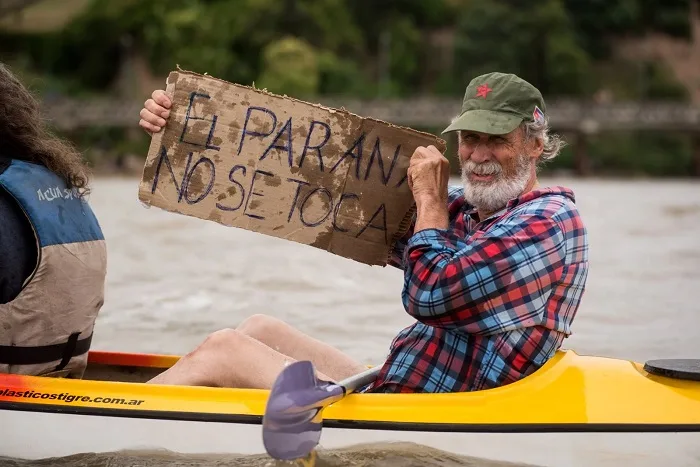 EL PARANÁ
NO SE TOCA
plasticostigre.com.ar